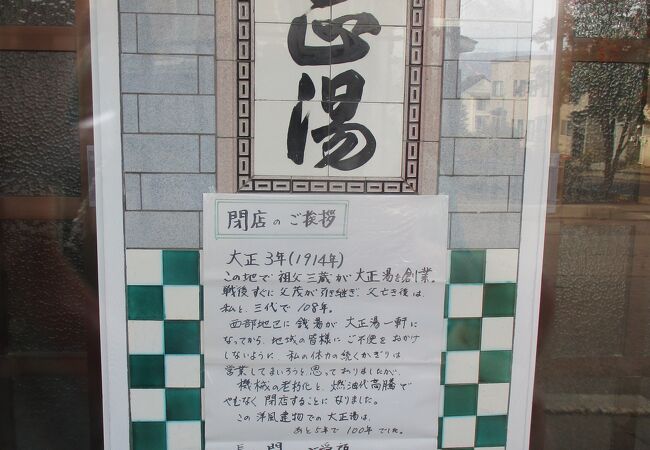 正湯
閉店のご挨拶
大正3年(1914年)
この地で祖父三蔵が大正湯を創業。
戦後すぐに父茂が引き継ぎ、父亡き後は、
私と、三代で108年。
西部地区に銭湯が大正湯一軒に
なってから、地域の皆様にご不便をおかけ
しないように 私の体力の続くかぎりは
営業してまいろうと思っておりましたが、
機械の老朽化と、燃油代高騰で
やむなく閉店することになりました。
この洋風建物での大正湯は、
あと5年で100年でした。
長 間 ご愛顧